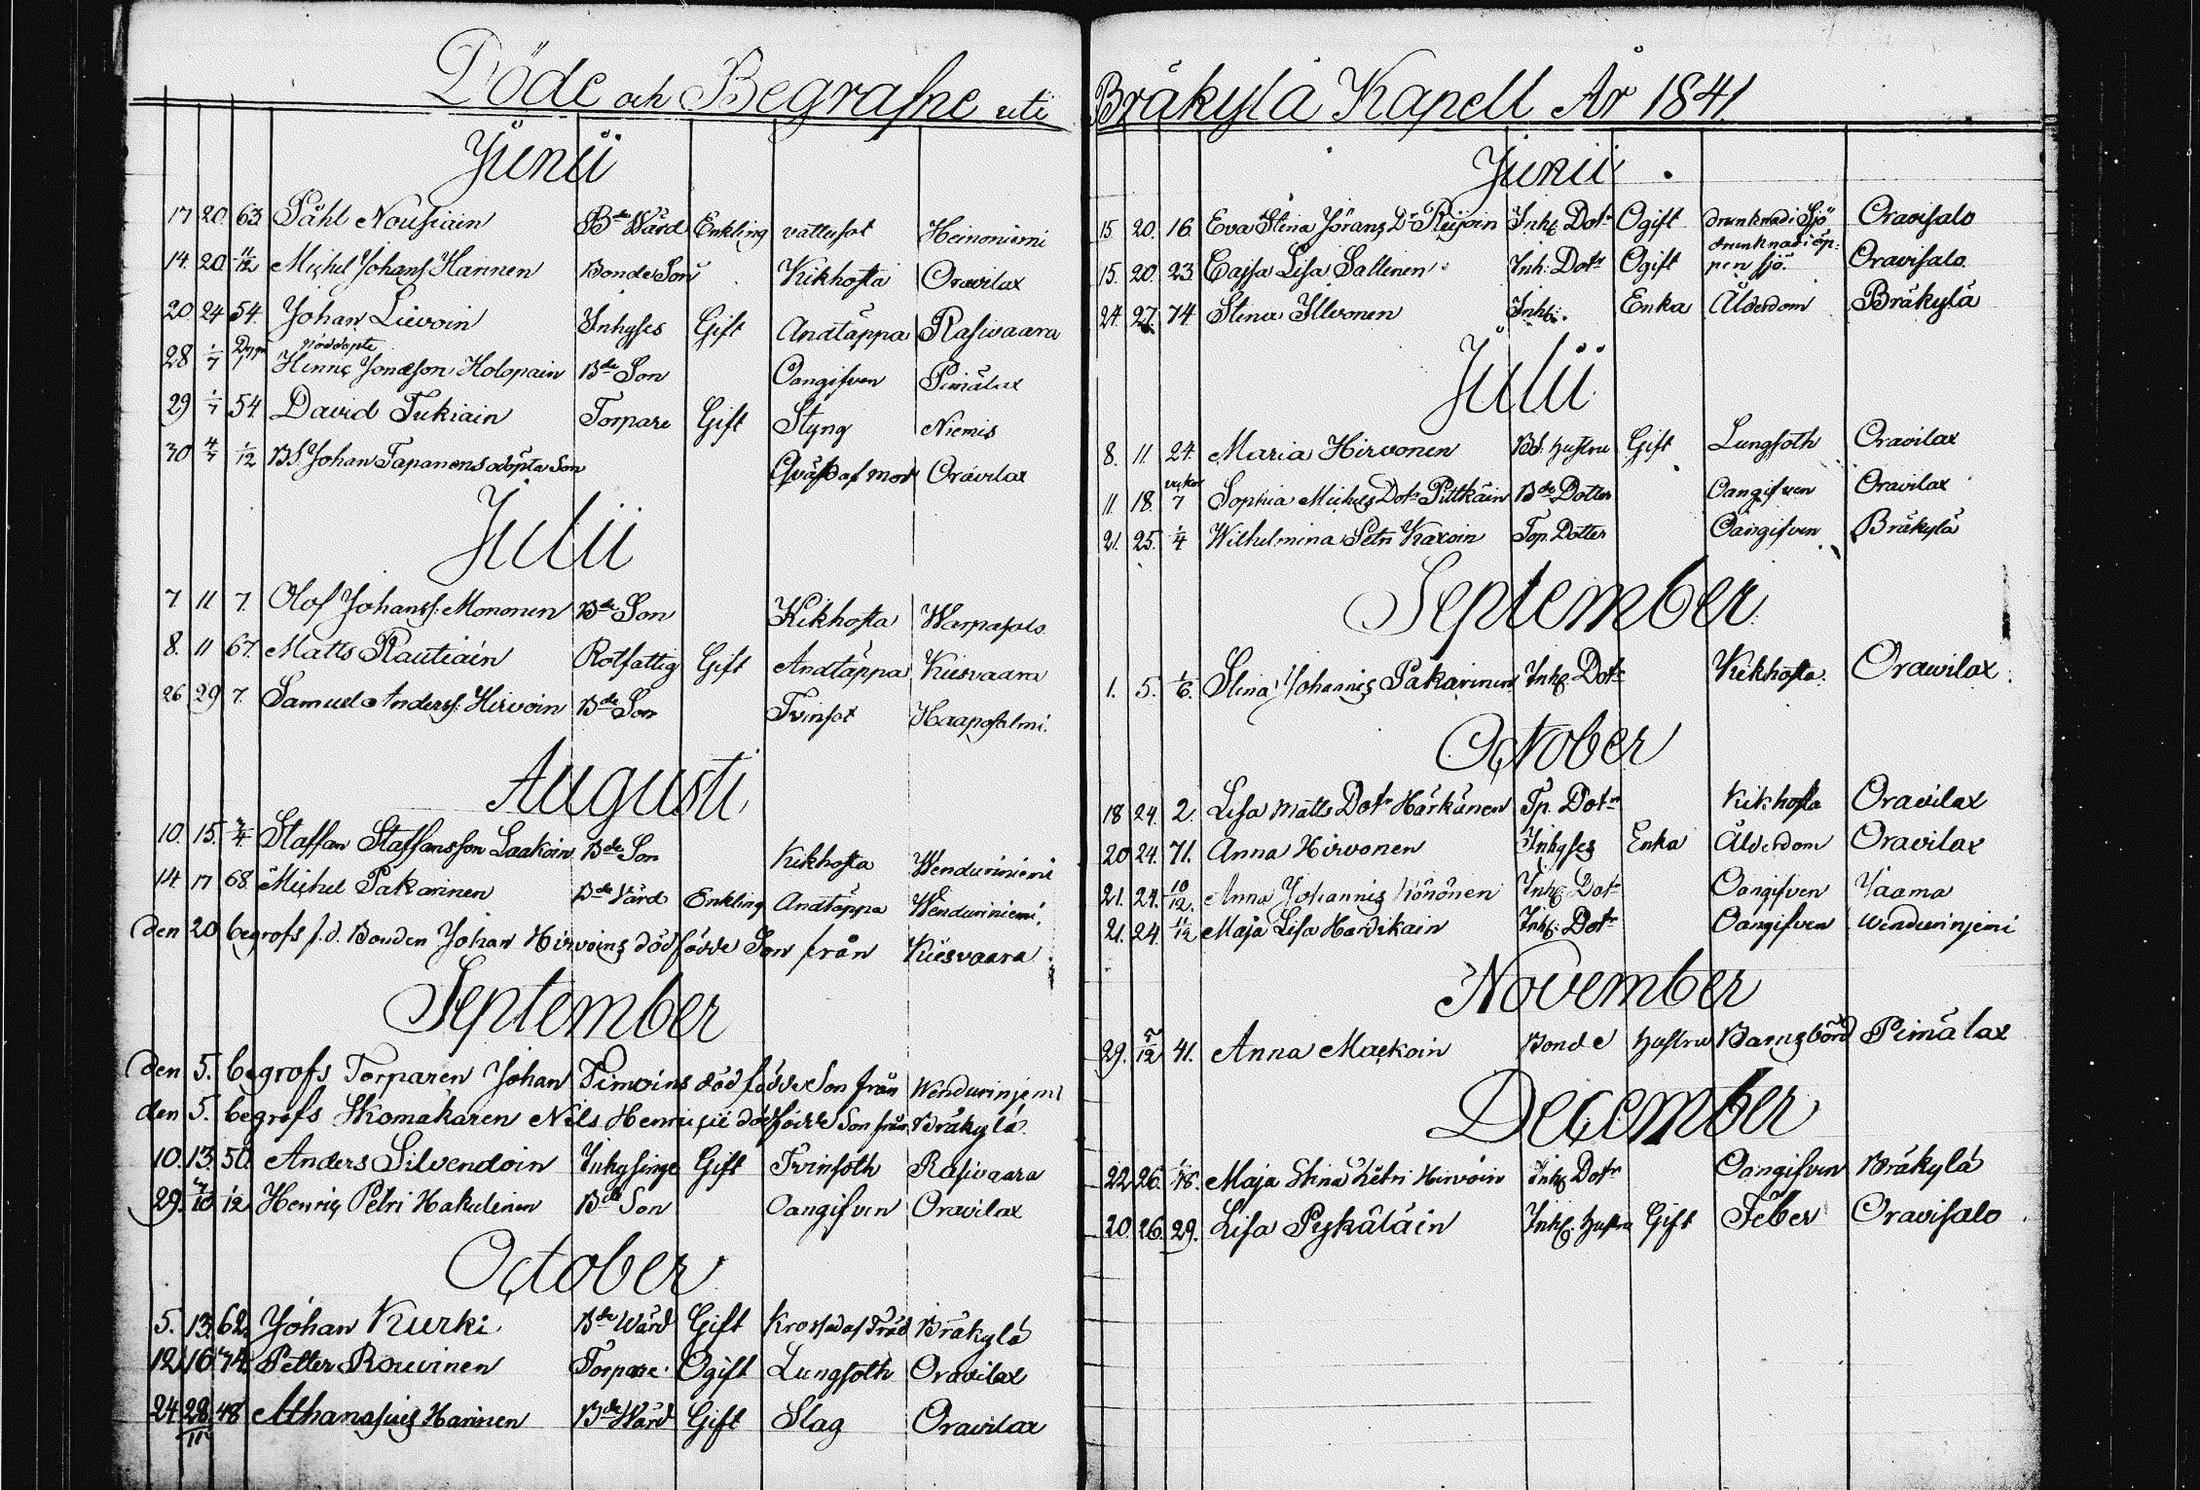 Döde och Begrafne uti
Junii
17 20 63 Påhl Nousiain Bde Wärd Enkling vattusot Heinoniemi
14. 20 11/12 Michel Johans: Hannen Bonde Son Kikhosta Oravilax
20 24 54. Johan Liivoin Inhyses Gift Andtäppa Rasivaara
nöddöpte
28 1/7 1 Henric Jonasson Holopain Bde Son Oangifven Pimälax
29 1/7 54 David Tukiain Torpare Gift Styng Niemis
30 4/7 1/12 BS. Johan Tapanens odöpta Son Qväfd af mod Oravilax
Julii
7 11 7. Olof Johanss: Mononen Bde Son Kikhosta Warpasalo
8. 11 67. Matts Rautiain Rotfattig Gift Andtäppa Kiesvaara
26 29 7. Samuel Anderss: Hirvoin Bde Son Tvinsot Haaposalmi.
Augusti
10. 15. 3/4 Staffan Staffansson Laakoin Bde Son Kikhosta Wenduriniemi
14 17 68 Michel Pakarinen Bde Wärd Enkling Andtäppa Wenduriniemi.
den 20 begrofs f.d. Bonden Johan Hirvoins dödfödde Son från Kiesvaara
September
den 5. begrofs Torparen Johan Timoins dödfödde Son från Wendurinjemi
den 5. begrofs Skomakaren Nils Henricii dödfödde Son från Bräkylä
10. 13. 50. Anders Silvendoin Inhysinge Gift Tvinsoth Rasivaara
29. 4/10 1/12 Henric Petri Hakulinen Bde Son Oangifven Oravilax
October
5. 13. 62. Johan Kurki Bde Wärd Gift Krossad af Träd Bräkylä
12. 16. 74. Petter Rouvinen Torpare Ogift Lungsoth Oravilax
24 28/11 48 Athanasius Harinen Bde Wärd Gift Slag Oravilax
Bräkylä Kapell År 1841.
Junii
15. 20. 16 Eva Stina Jörans Dr Reijoin Inhs Dotr Ogift drunknad i Sjö Oravisalo
15. 20. 23 Cajsa Lisa Sallinen Inh: Dotr Ogift drunknad i öppen sjö. Oravisalo
24. 27. 74 Stina Illvonen Inhs: Enka Ålderdom Bräkylä
Julii
8. 11. 24. Maria Hirvonen Bd: hustru Gift Lungsoth Oravilax
11 18. 7 veckor Sophia Michels Dotr Pittkäin Bde Dotter Oangifven Oravilax
21. 25. 1/4 Wilhelmina Petri Karoin Top. Dotter Oangifven Bräkylä
September
1. 5. 1/6. Stina Johannis Pakarinen Inhs Dotr Kikhosta. Oravilax.
October
18 24. 2. Lisa Matts Dotr Härkänen Tp. Dotr Kikhosta Oravilax
20 24. 71. Anna Hirvonen Inhyses Enka Ålderdom Oravilax
21. 24. 10/12. Anna Johannis Könönen Inhs Dotr Oangifven Jaama
21. 24. 11/12 Maja Lisa Hardikain Inhs: Dotr Oangifven Wendurinjemi
November
29. 5/12 41. Anna Mackoin Bonde hustru Barnsbörd Pimälax
December
22 26. Maja Stina Petri Hirvoin Inhs Dotr Oangifven Bräkylä
20. 26. 29. Lisa Pykäläin Inhs. hustru Gift Feber Oravisalo